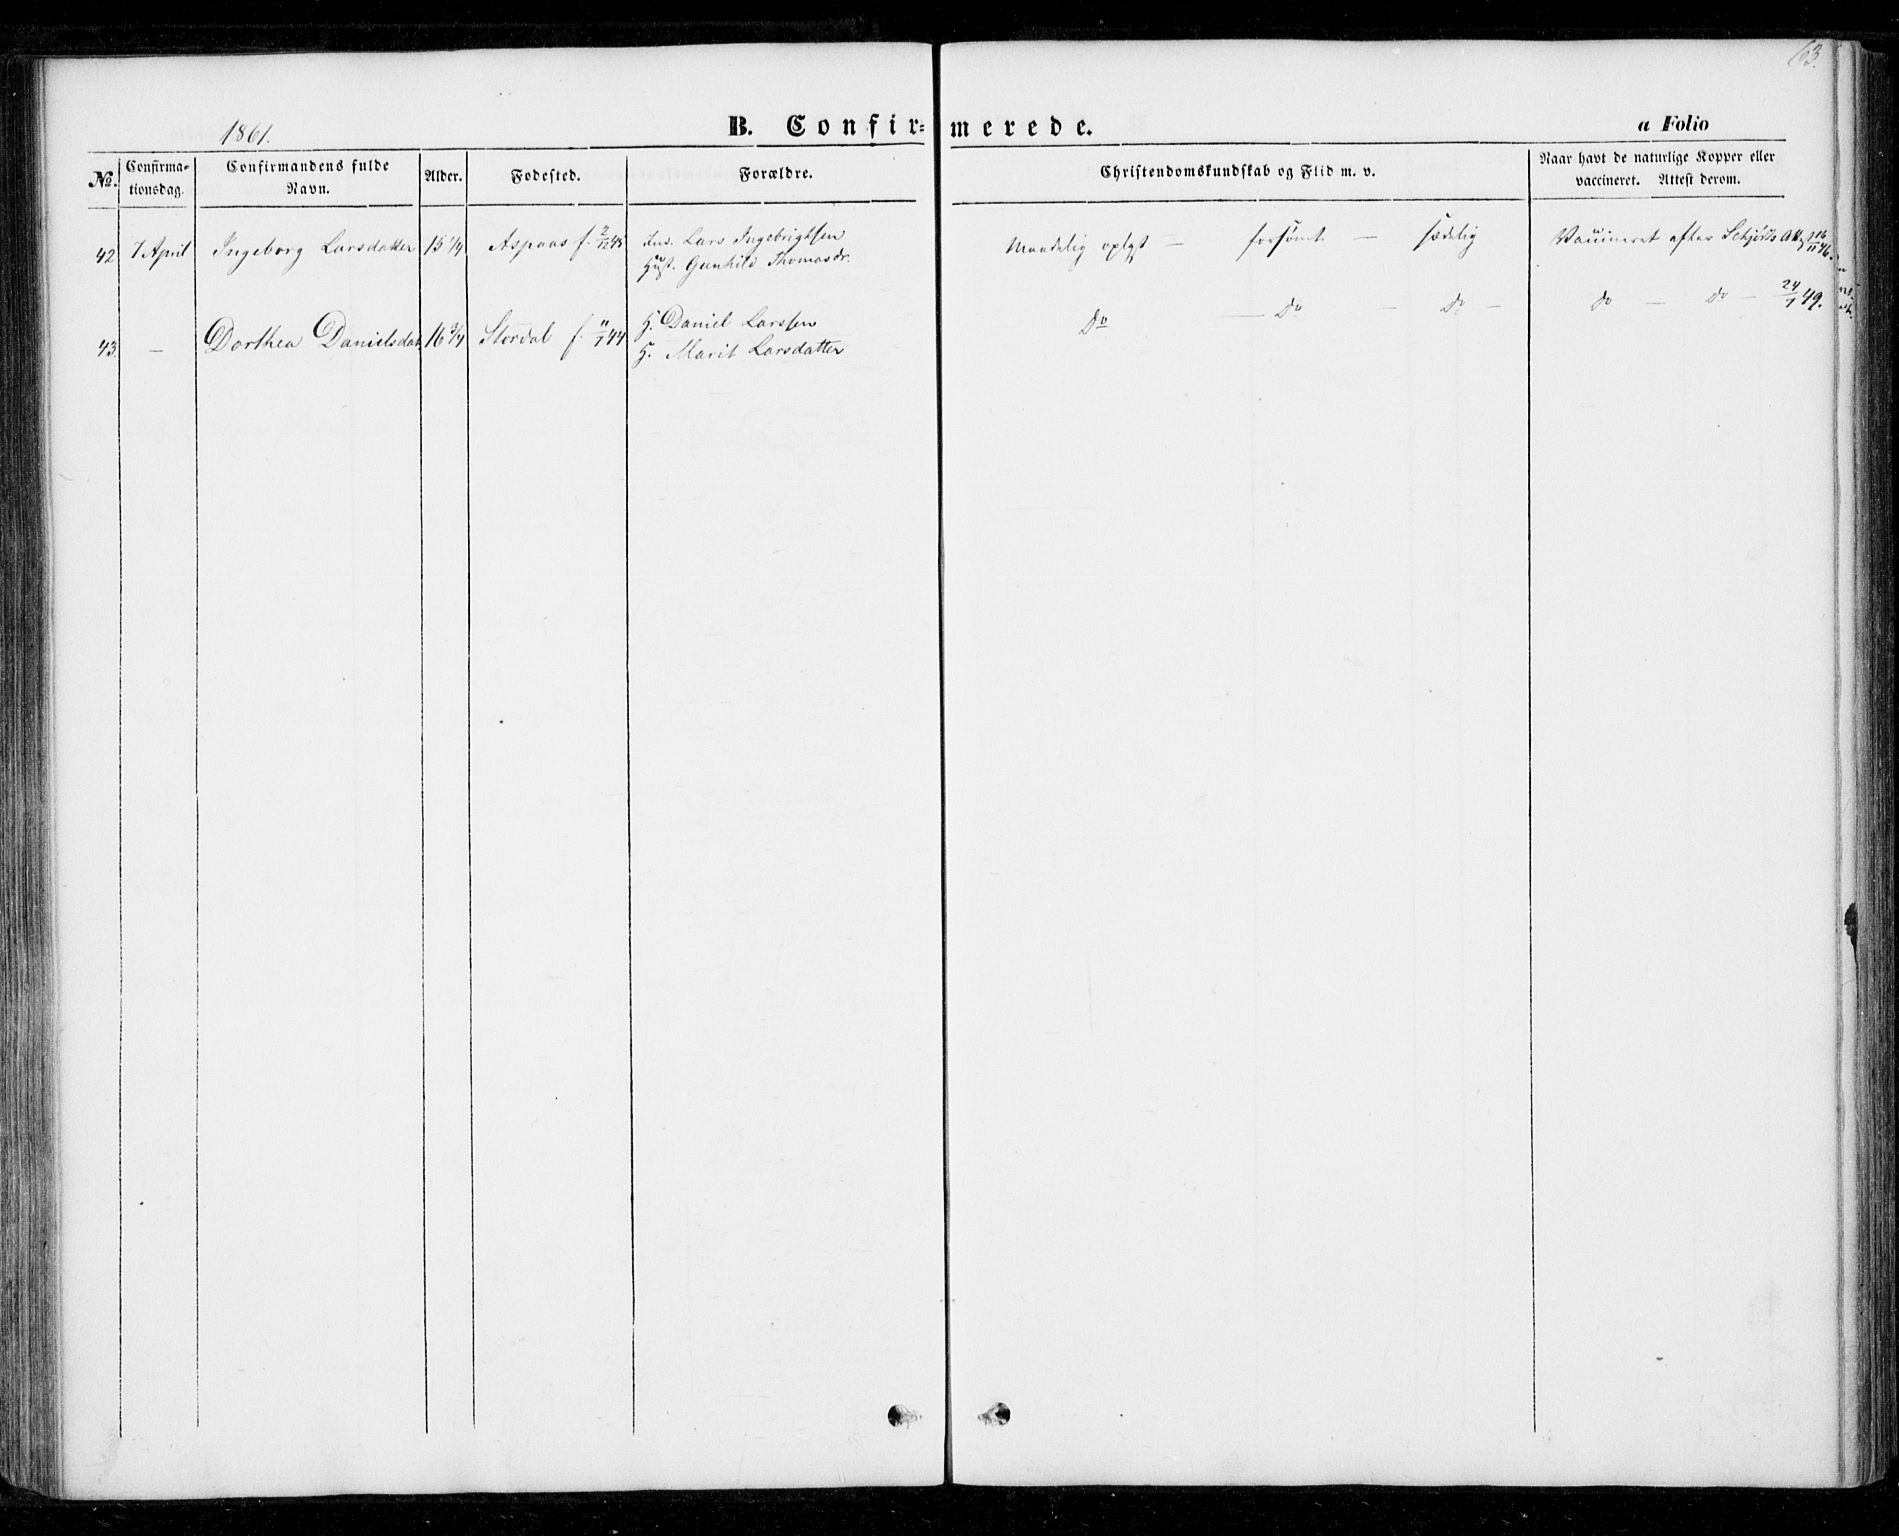 63.
1861.
B. Confir=merede.
a Folio
No.
Confirma-
tionsdag.
Confirmandens fulde
Navn.
Alder.
Fødested.
Forældre.
Christendomskundskab og Flid m. v.
Naar havt de naturlige Kopper eller
vaccineret. Attest derom.
42 7 April Ingeborg Larsdatter 15 1/4 Aspaas f. 2/12 45
Ind. Lars Ingebrigtsen
Hust. Gunhild Thomasdr.
Maadelig oplyst — forsømt — sædelig
Vaccineret efter Att
43. — Dorthea Danielsdat 16 3/4 Stordal f. 11/7 44
H. Daniel Larssen
H. Marit Larsdatter
Do — Do — Do —
do — do — 24/1 49.